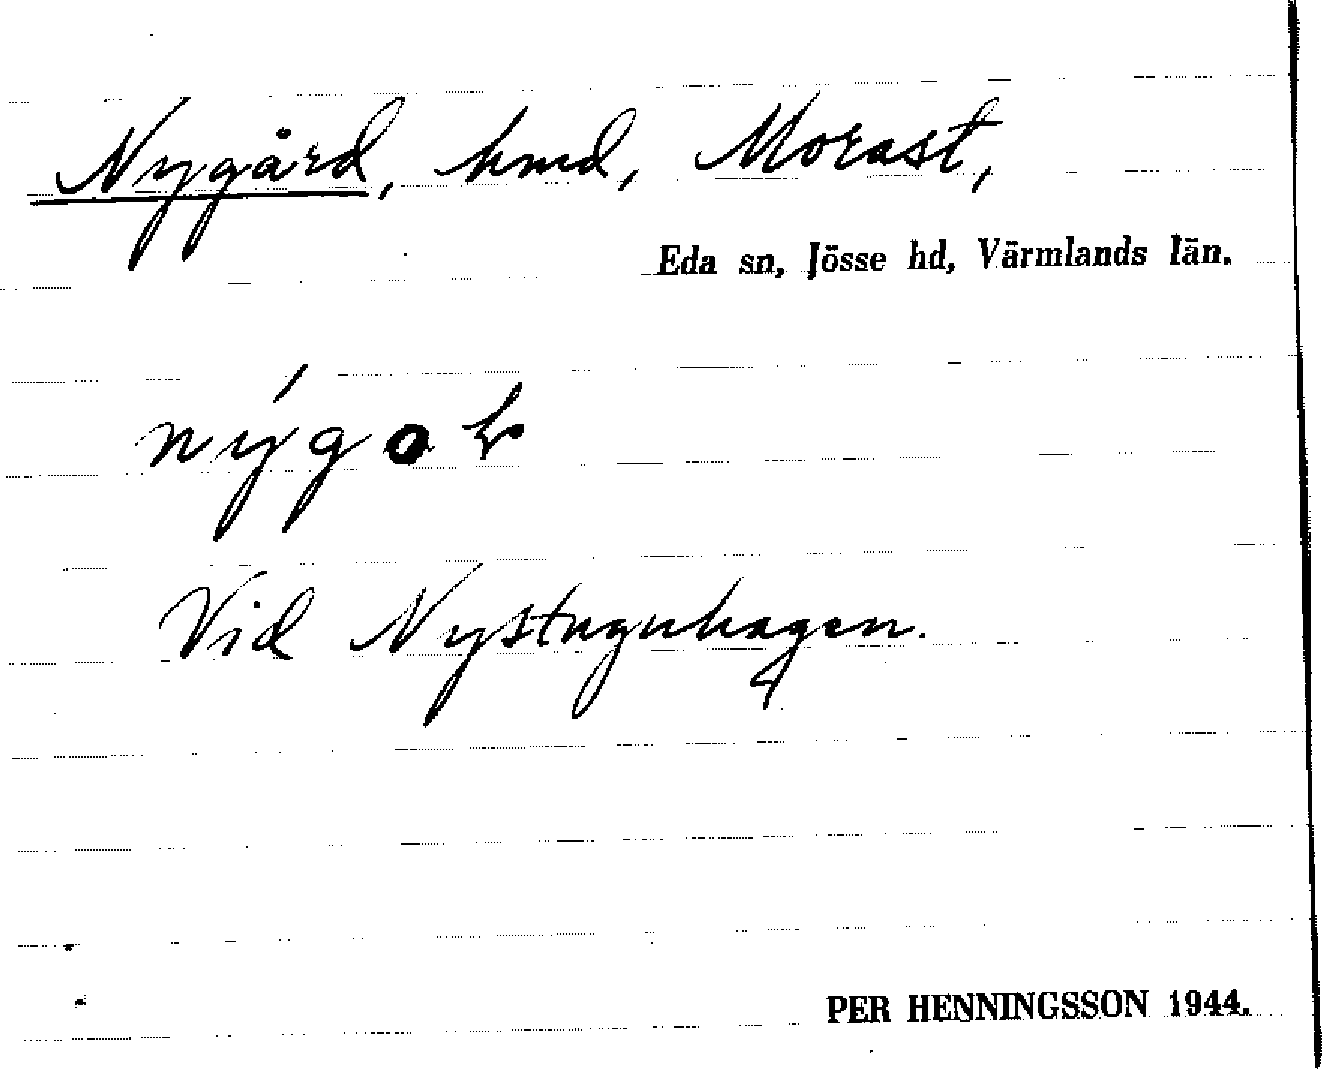 Nygård, hmd, Morast,
Eda sn, Jösse hd, Värmlands län.
Vid Nystuguhagen.
PER HENNINGSSON 1944.